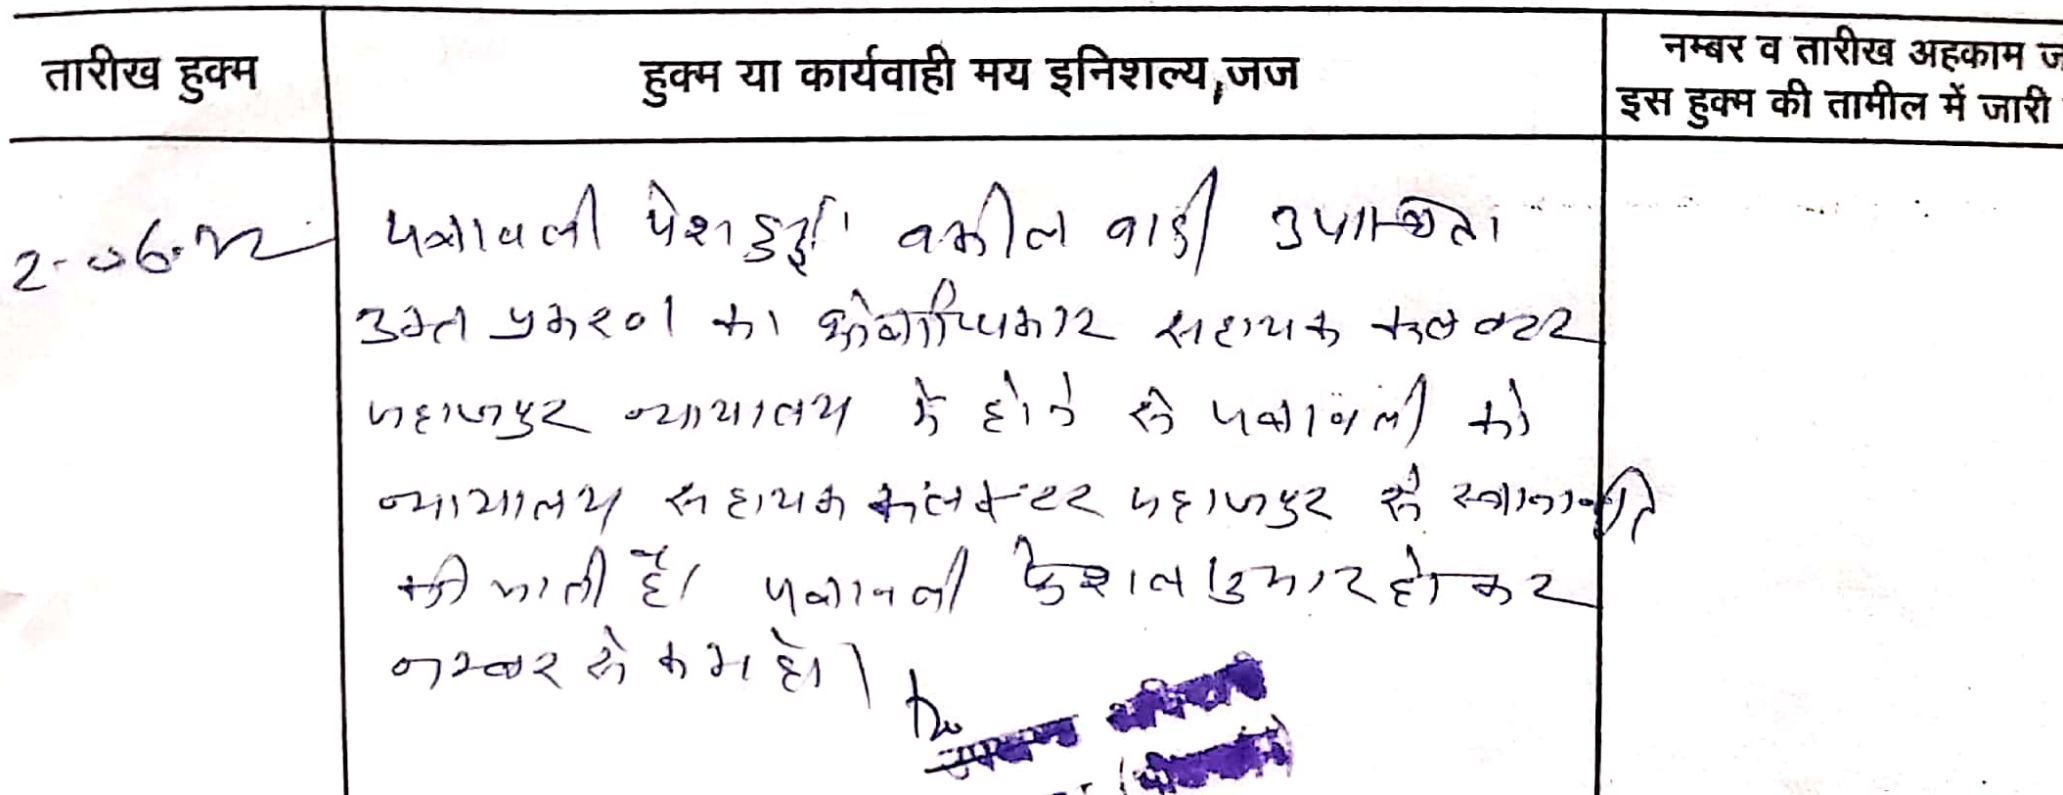 तारीख हुक्म
हुक्म या कार्यवाही मय इनिशल्य, जज
नम्बर व तारीख अहकाम ज
इस हुक्म की तामील में जारी
पत्रावली पेश हुई। वकील वादी उपस्थित।
उक्त प्रकरण का क्षेत्राधिकार सहायक कलक्टर
जहाजपुर न्यायालय में होने से पत्रावली को
न्यायालय सहायक कलक्टर जहाजपुर से स्थानान्तरित
की जाती है। पत्रावली फैशल शुमार होकर
नम्बर से कम हो।